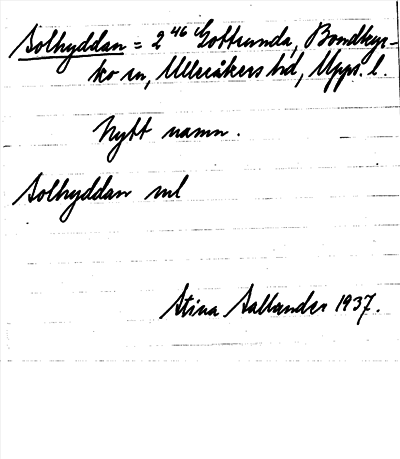 Solhyddan = 2⁴⁶ Gottsunda, Bondkyr-
ko sn, Ulleråkers hd, Upps. l.
Nytt namn.
Solhyddan ml
Stina Sallander 1937.